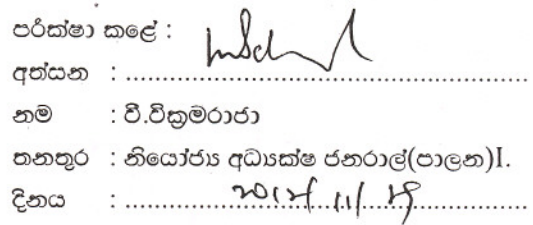 පරික්ෂා කළේ :
අත්සන : ..........................................................
නම : වී.වික්‍රමරාජා
තනතුර : නියෝජ්‍ය අධ්‍යක්ෂ ජනරාල්(පාලන)I.
දිනය : ..........................................................